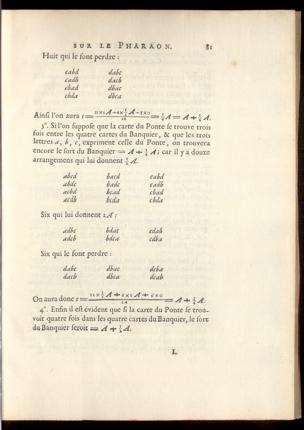 SUR LE PHARAON. 81
Huit qui le font perdre :
cabd dabc
cadb dacb
cbad dbac
cbda dbca
Ainsi l'on aura s=
= A + ¼A.
3°. Si l'on suppose que la carte du Ponte se trouve trois
fois entre les quatre cartes du Banquier, & que les trois
lettres a, b, c, expriment celle du Ponte, on trouvera
encore le sort du Banquier = A + A; car il y a douze
arrangemens qui lui donnent A.
abcd bacd cabd
abdc badc cadb
acbd bcad cbad
acdb bcda cbda
Six qui lui donnent 2A :
adbc bdac cdab
adcb bdca cdba
Six qui le font perdre :
dabc dbac dcba
dacb dbca dcab
On aura donc s=
= A + A.
4°. Enfin il est évident que si la carte du Ponte se trou-
voit quatre fois dans les quatre cartes du Banquier, le sort
du Banquier seroit = A + A.
L